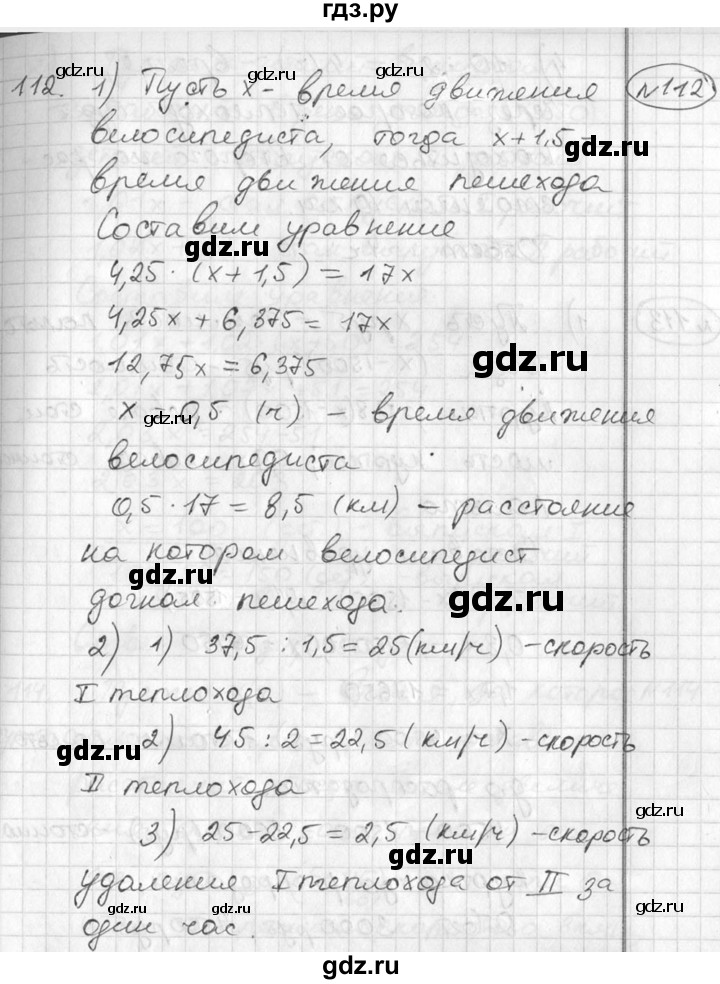 гдз.ру
112. 1) Пусть x - время движения
№112
велосипедиста, тогда x+1,5 -
время движения пешехода
Составим уравнение
gdz.ru
4,25 · (x + 1,5) = 17x
4,25x + 6,375 = 17x
12,75x = 6,375
gdz.ru
x = 0,5 (ч) - время движения
gdz.ru
gdz.ru
велосипедиста
0,5 · 17 = 8,5 (км) - расстояние
на котором велосипедист
gdz.ru
догнал пешехода.
gdz.ru
2) 1) 37,5 : 1,5 = 25 (км/ч) - скорость
I теплохода
2) 45 : 2 = 22,5 (км/ч) - скорость
gdz.ru
II теплохода
3) 25 - 22,5 = 2,5 (км/ч) - скорость
gdz.ru
удаления I теплохода от II за
gdz.ru
gdz.ru
gdz.ru
один час.
gdz.ru